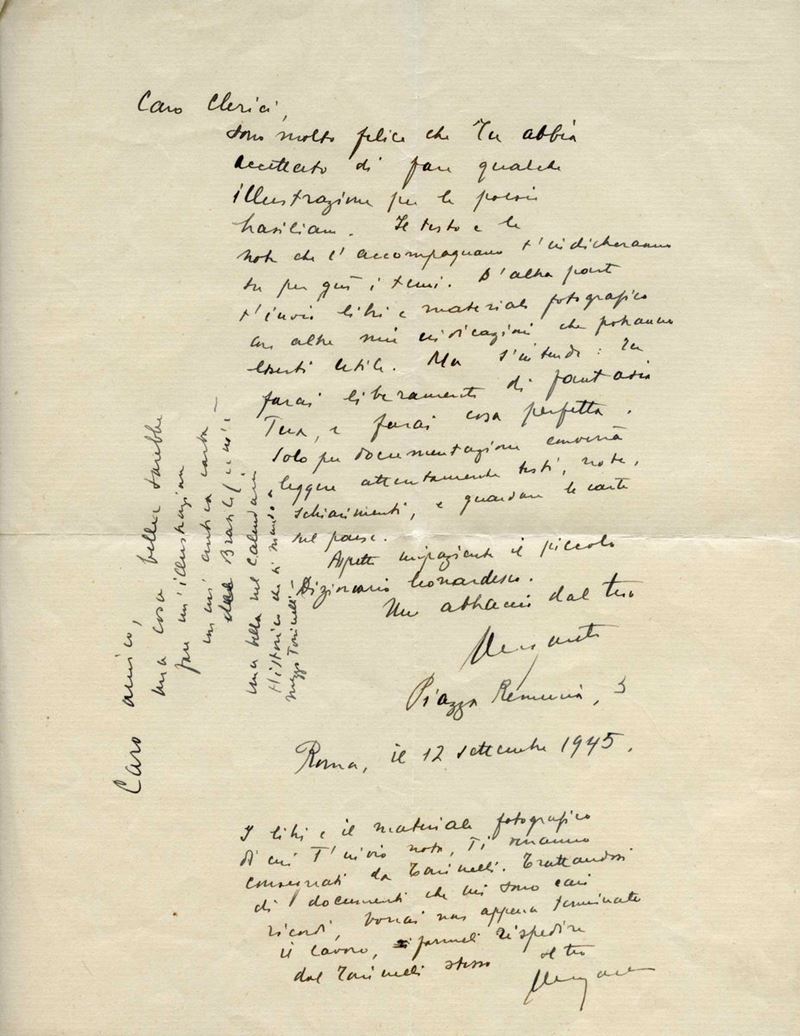 Caro Clerici,
sono molto felice che Tu abbia
accettato di fare qualche
illustrazione per le poesie
brasiliane. Il testo e le
note che l'accompagnano t'indicheranno
su per giù i temi. D'altra parte
t'invio libri e materiale fotografico
con altre mie indicazioni che potranno
esserti utili. Ma s'intende: Tu
farai liberamente di fantasia
Tua, e farai cosa perfetta.
Solo per documentazione converrà
leggere attentamente testi, note,
schiarimenti, e guardare le carte
sul paese.
Aspetto impaziente il piccolo
Dizionario leonardesco.
Un abbraccio dal tuo
Ungaretti
Piazza Remuria, 3
Roma, il 12 settembre 1945.
Caro amico,
una cosa bella sarebbe
fare un'illustrazione
su un'antica carta
del Brasile (ce n'è
una bella nel Calendario
Historico che ti mando a
mezzo Toninelli –
I libri e il materiale fotografico
di cui T'invio nota, Ti verranno
consegnati da Toninelli. Trattandosi
di documenti che mi sono cari
ricordi, vorrai non appena terminato
il lavoro, farmeli rispedire
dal Toninelli stesso il tuo
Ungaretti